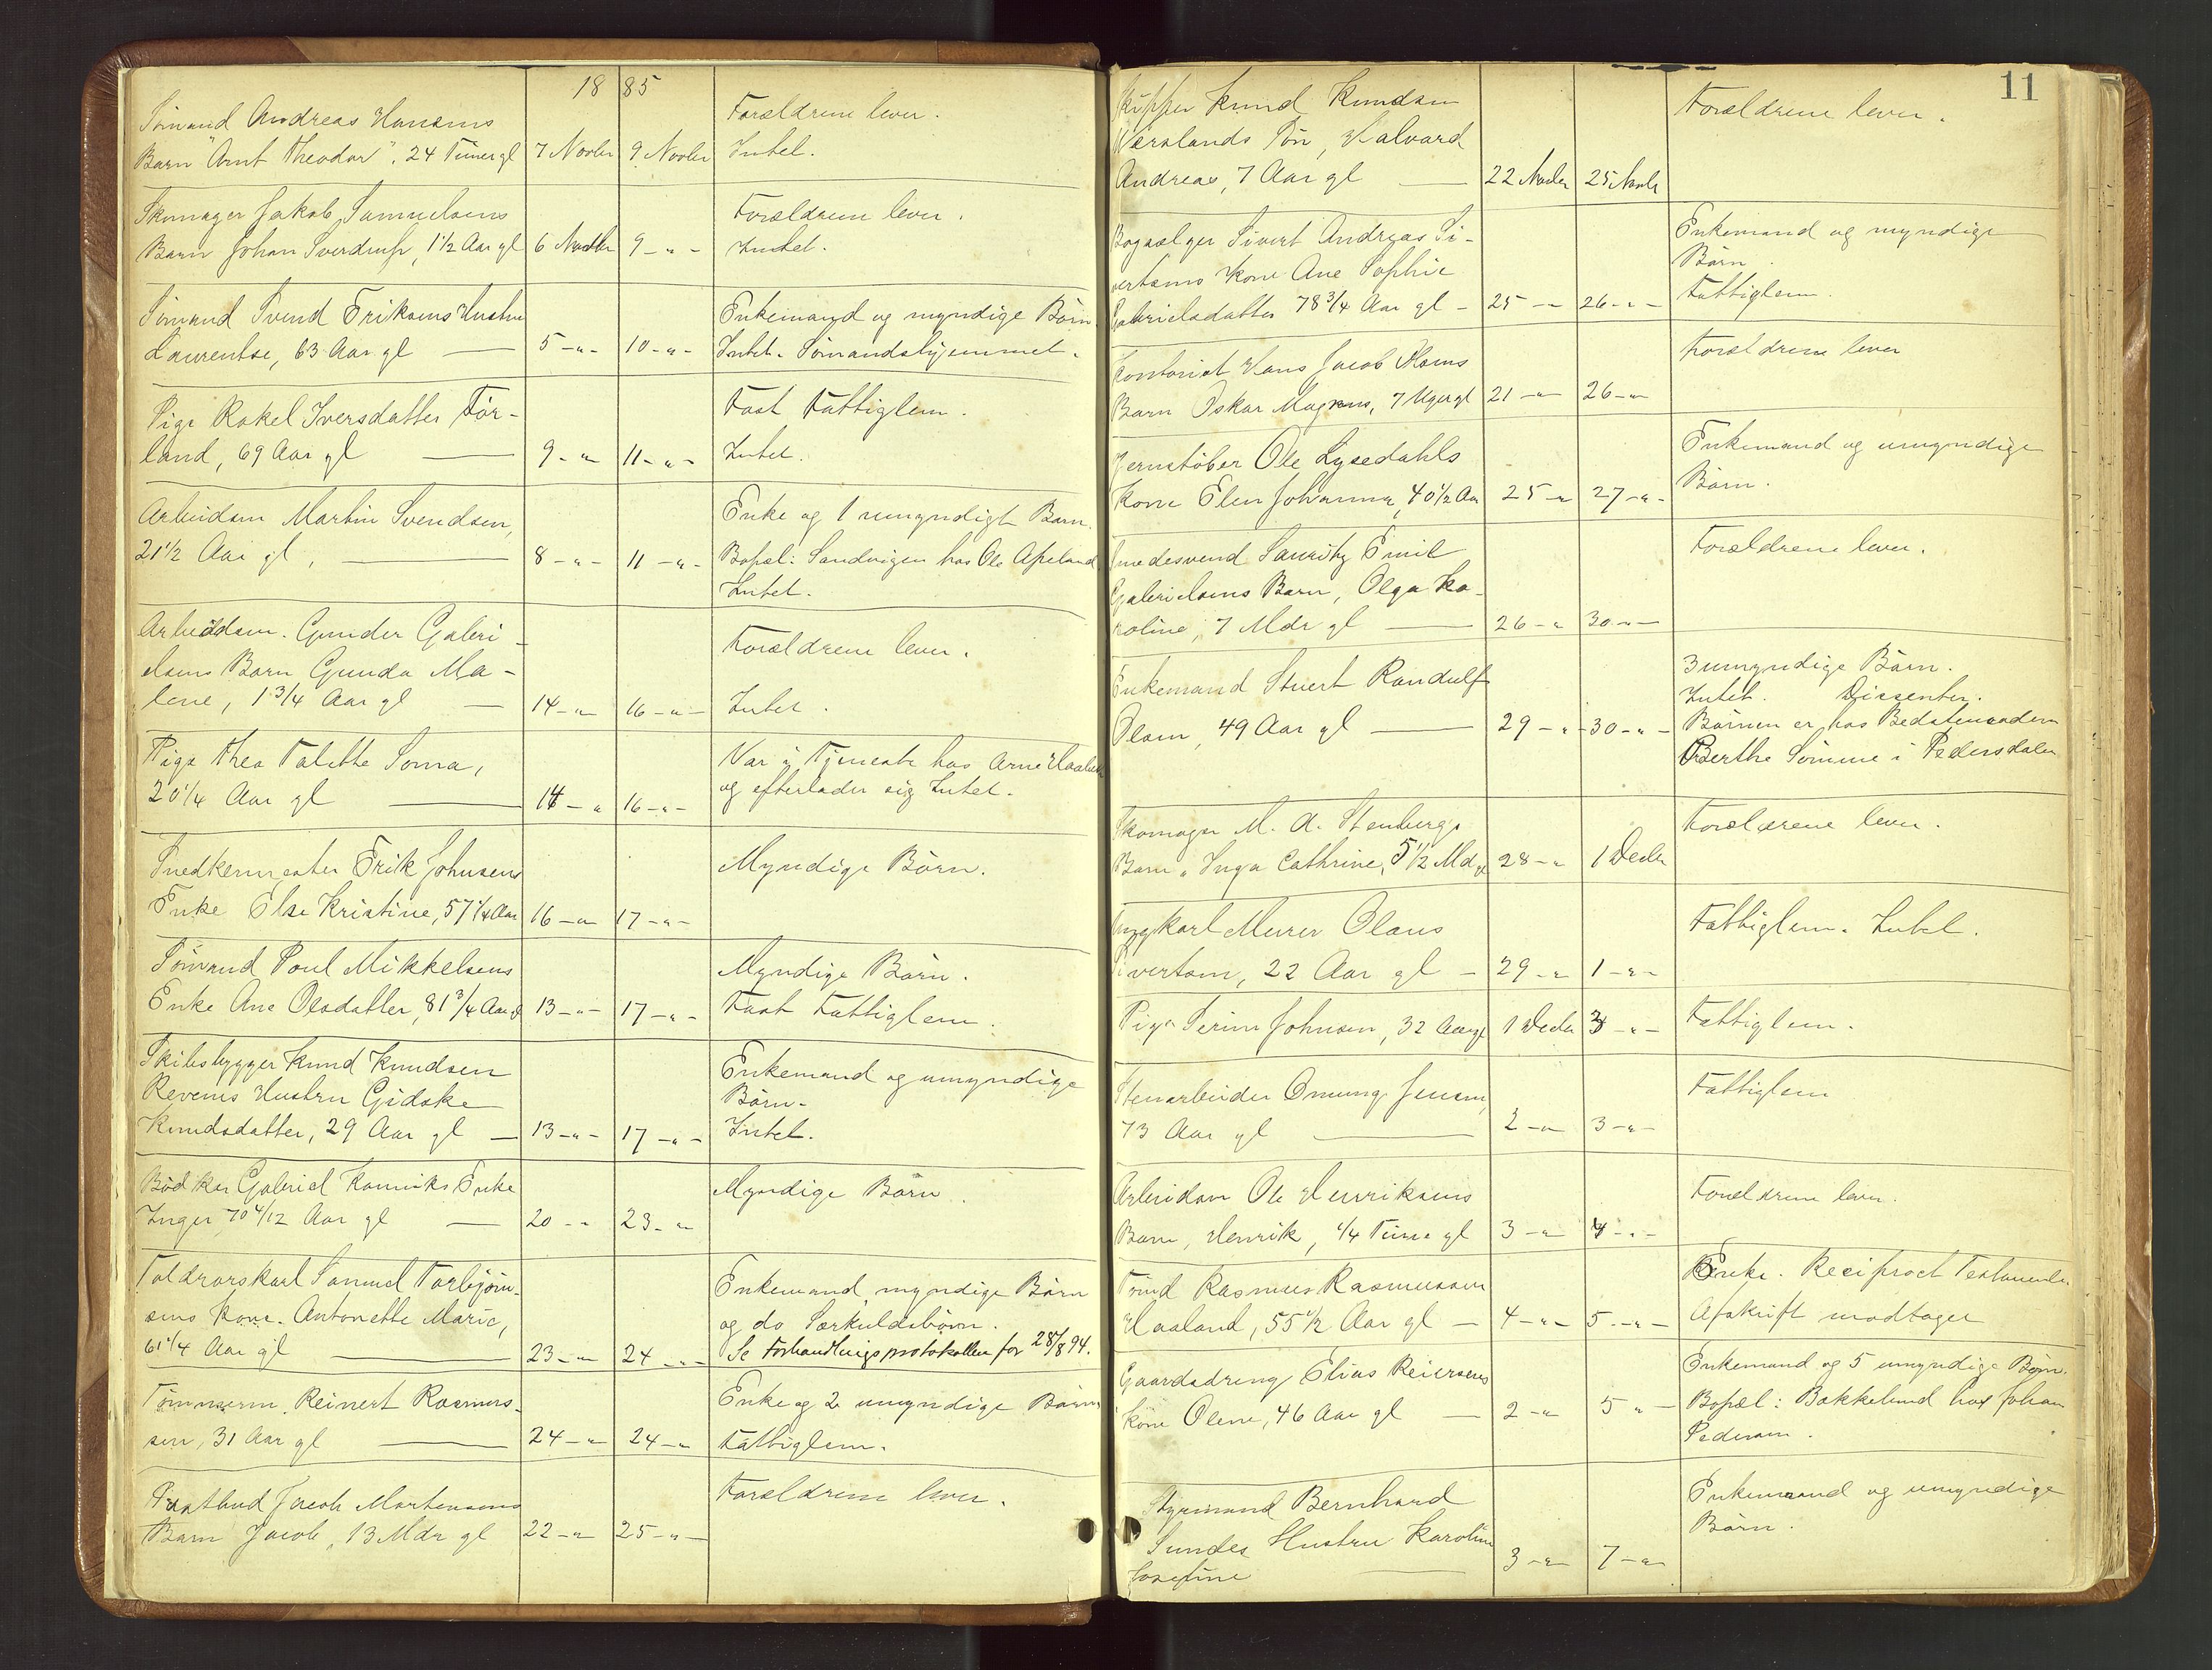 18 85
Sømand Andreas Hansens
Barn "Arnt Theodor". 24 Timer gl 7 Novbr 9 Novbr
Forældrene lever.
Intet.
Skomager Jakob Samuelsens
Barn Johan Sverdrup, 1½ Aar gl 6 Novbr 9 - " -
Forældrene lever.
Intet.
Sømand Svend Eriksens Hustru
Laurentse, 63 Aar gl 5 - " - 10 - " -
Enkemand og myndige Børn.
Intet. Sømandshjemmet.
Pige Rakel Iversdatter Før-
land, 69 Aar gl 9 - " 11 - " -
Fast Fattiglem.
Intet.
Arbeidsm Martin Svendsen,
21½ Aar gl, 8 - " - 11 - " -
Enke og 1 umyndigt Barn.
Bopæl: Sandvigen hos Ole Apeland
Intet.
Arbeidsm. Gunder Gabri-
elsens Barn Gunda Ma-
lene, 1¾ Aar gl 14 - " 16 - " -
Forældrene lever.
Intet.
Pige Thea Talette Soma,
20¼ Aar gl 14 - " 16 - " -
Var i Tjeneste hos Arne
og efterlader sig Intet.
Snedkermester Erik Johnsens
Enke Else Kristine, 57¼ Aar 16 - " 17 - " -
Myndige Børn.
Sømand Poul Mikkelsens
Enke Ane Olsdatter, 81¾ Aar gl 13 - " - 17 - " -
Myndige Børn.
Fast Fattiglem.
Skibsbygger Knud Knudsen
Revems Hustru Gidske
Knudsdatter, 29 Aar gl 13 - " - 17 - " -
Enkemand og umyndige
Børn.
Intet.
Bødker Gabriel Kanniks Enke
Inger 70 4/12 Aar gl 20 - " 23 - "
Myndige Børn.
Toldrorskarl Samuel Torbjørn-
sens Kone Antonette Marie,
61¼ Aar gl 23 - " 24 - " -
Enkemand, myndige Børn
og do Særkuldsbørn.
Se Forhandlingsprotokollen for 28/8 94.
Tømmerm. Reinert Rasmus-
sen, 31 Aar gl 24 - " 24 - "
Enke og 2 umyndige Børn.
Fattiglem.
Postbud Jacob Mortensens
Barn Jacob, 13 Mdr gl 22 - " 25 - " -
Forældrene lever.
11
Skipper Knud Knudsen
Nærslands Søn, Halvard
Andreas, 7 Aar gl 22 Novbr 25 Novbr
Forældrene lever.
Bogsælger Sivert Andreas Si-
vertsens Kone Ane Sophie
Gabrielsdatter 78¾ Aar gl 25 - " 26 - " -
Enkemand og myndige
Børn.
Fattiglem.
Kontorist Hans Jacob Olsens
Barn Oskar Magnus, 7 Uger gl 21 - " 26 - "
Forældrene lever
Jernstøber Ole Lysedahls
Kone Elen Johanna, 40½ Aar 25 - " 27 - " -
Enkemand og umyndige
Børn.
Smedesvend Lauritz Emil
Gabrielsens Barn, Olga Ka-
roline, 7 Mdr gl 26 - " 30 - "
Forældrene lever.
Enkemand Stuert Randulf
Olsen, 49 Aar gl 29 - " 30 - " -
3 umyndige Børn.
Intet. Dissenter.
Børnen er hos Bedstemoderen
Berthe Sømme i Pedersdalen
Skomager M. A. Stenbergs
Barn Inga Cathrine, 5½ Mdr gl 28 - " 1 Decbr
Forældrene lever.
Ungkarl Murer Olaus
Sivertsen, 22 Aar gl 29 - " 1 - " -
Fattiglem. Intet.
Pige Serine Johnsen, 32 Aar gl 1 Decbr 3 - " -
Fattiglem.
Stenarbeider Omund Jensen,
73 Aar gl 2 - " 3 - " -
Fattiglem
Arbeidsm Ole Henriksens
Barn, Henrik, ¼ Time gl 3 - " 4 - " -
Forældrene lever.
Fvnd Rasmus Rasmussen
Haaland, 55½ Aar gl 4 - " - 5 - " -
Enke. Reciprokt Testamente
Afskrift modtaget
Gaardsdreng Elias Reiersens
Kone Olene, 46 Aar gl 2 - " 5 " -
Enkemand og 5 umyndige Børn.
Bopæl: Bakkelund hos Johan
Pedersen.
Styrmand Bernhard
Sundes Hustru Karoline
Josefine 3 - " 7 - "
Enkemand og umyndige
Børn.